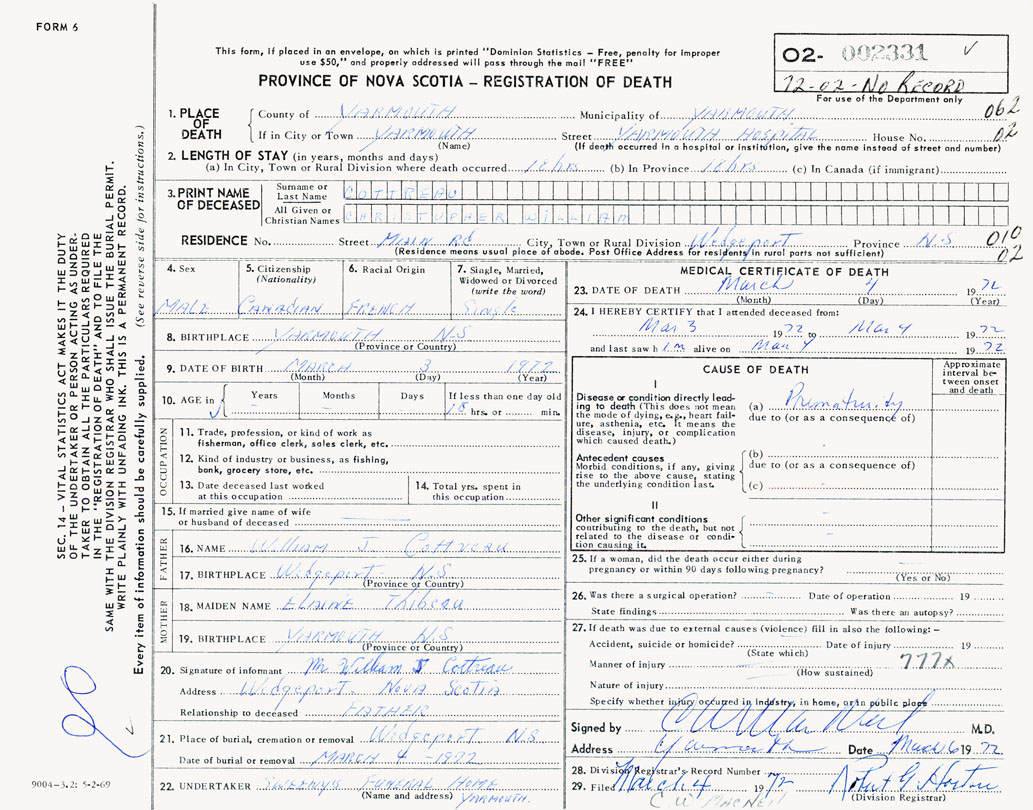 FORM 6
This form, if placed in an envelope, on which is printed "Dominion Statistics – Free, penalty for improper
use $50," and properly addressed will pass through the mail "FREE"
PROVINCE OF NOVA SCOTIA – REGISTRATION OF DEATH
O2- 002331 ✓
72-02-NO RECORD
For use of the Department only
062
02
1. PLACE OF DEATH
County of YARMOUTH Municipality of YARMOUTH
If in City or Town YARMOUTH Street YARMOUTH HOSPITAL House No.
(Name) (If death occurred in a hospital or institution, give the name instead of street and number)
2. LENGTH OF STAY (in years, months and days)
(a) In City, Town or Rural Division where death occurred 18 hrs (b) In Province 18 hrs (c) In Canada (if immigrant)
3. PRINT NAME OF DECEASED
Surname or Last Name COTTREAU
All Given or Christian Names CHRISTOPHER WILLIAM
RESIDENCE No. Street MAIN Rd City, Town or Rural Division Wedgeport Province N-S
(Residence means usual place of abode. Post Office Address for residents in rural parts not sufficient)
010
02
4. Sex MALE
5. Citizenship (Nationality) CANADIAN
6. Racial Origin FRENCH
7. Single, Married, Widowed or Divorced (write the word) Single
8. BIRTHPLACE YARMOUTH N-S
(Province or Country)
9. DATE OF BIRTH MARCH 3 1972
(Month) (Day) (Year)
10. AGE in Years Months Days If less than one day old
18 hrs. or min.
OCCUPATION
11. Trade, profession, or kind of work as
fisherman, office clerk, sales clerk, etc.
12. Kind of industry or business, as fishing,
bank, grocery store, etc.
13. Date deceased last worked
at this occupation
14. Total yrs. spent in
this occupation
15. If married give name of wife
or husband of deceased
FATHER
16. NAME WILLIAM J. COTTREAU
17. BIRTHPLACE Wedgeport N.S
(Province or Country)
MOTHER
18. MAIDEN NAME ELAINE Thibeau
19. BIRTHPLACE YARMOUTH N.S
(Province or Country)
20. Signature of informant Mr. William J Cottreau
Address Wedgeport Nova Scotia
Relationship to deceased FATHER
21. Place of burial, cremation or removal Wedgeport N.S
Date of burial or removal MARCH 4 -1972
22. UNDERTAKER SWEENYS FUNERAL HOME
(Name and address) YARMOUTH.
MEDICAL CERTIFICATE OF DEATH
23. DATE OF DEATH March 4 1972
(Month) (Day) (Year)
24. I HEREBY CERTIFY that I attended deceased from:
Mar 3 1972 to Mar 4 1972
and last saw him alive on Mar 4 1972
CAUSE OF DEATH
Approximate interval between onset and death
I
Disease or condition directly leading to death (This does not mean the mode of dying, e.g., heart failure, asthenia, etc. It means the disease, injury, or complication which caused death.)
(a) Prematurity
due to (or as a consequence of)
Antecedent causes
Morbid conditions, if any, giving rise to the above cause, stating the underlying condition last.
(b)
due to (or as a consequence of)
(c)
II
Other significant conditions
contributing to the death, but not related to the disease or condition causing it.
25. If a woman, did the death occur either during
pregnancy or within 90 days following pregnancy?
(Yes or No)
26. Was there a surgical operation? Date of operation 19
State findings Was there an autopsy?
27. If death was due to external causes (violence) fill in also the following: –
Accident, suicide or homicide? Date of injury 19
(State which)
777x
Manner of injury
(How sustained)
Nature of injury
Specify whether injury occurred in Industry, in home, or in public place
Signed by M.D.
Address Yarmouth Date March 6 1972
28. Division Registrar's Record Number
29. Filed March 4 1972 Robert G. Horton
C W MacNeil (Division Registrar)
SEC. 14 – VITAL STATISTICS ACT MAKES IT THE DUTY
OF THE UNDERTAKER OR PERSON ACTING AS UNDER-
TAKER TO OBTAIN ALL THE PARTICULARS REQUIRED
IN THE "REGISTRATION OF DEATH" AND TO FILE THE
SAME WITH THE DIVISION REGISTRAR WHO SHALL ISSUE THE BURIAL PERMIT.
WRITE PLAINLY WITH UNFADING INK. THIS IS A PERMANENT RECORD.
Every item of information should be carefully supplied. (See reverse side for instructions.)
9004-3.2: 5-2-69